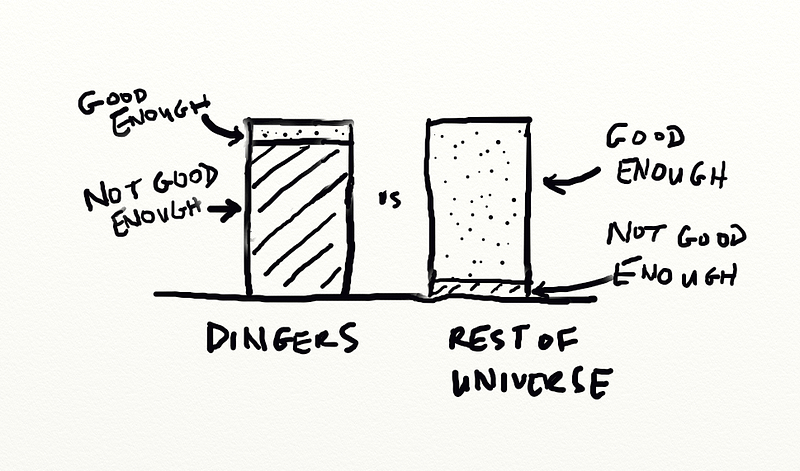 GOOD
ENOUGH
NOT GOOD
ENOUGH
vs
GOOD
ENOUGH
NOT GOOD
ENOUGH
DINGERS
REST OF
UNIVERSE